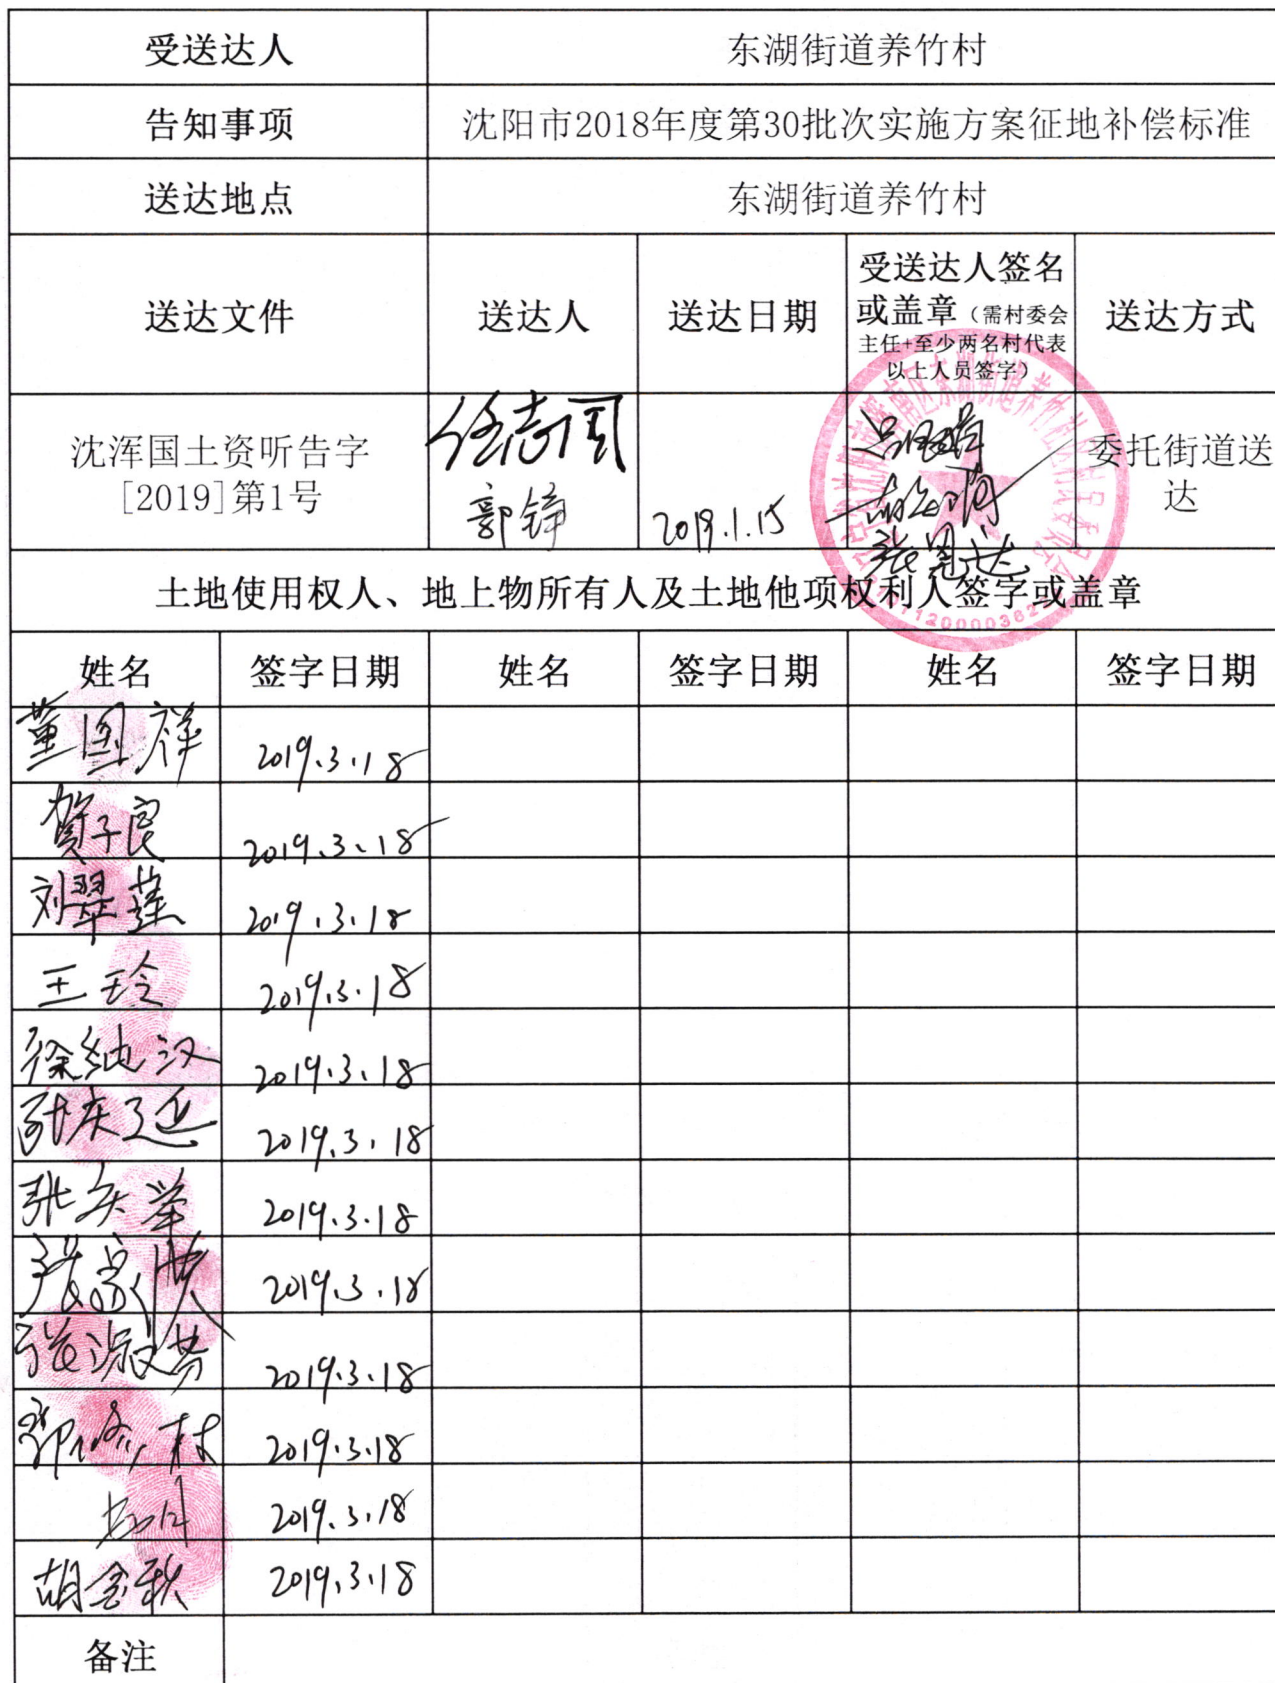 受送达人 东湖街道养竹村
告知事项 沈阳市2018年度第30批次实施方案征地补偿标准
送达地点 东湖街道养竹村
送达文件 送达人 送达日期 受送达人签名或盖章（需村委会主任+至少两名村代表以上人员签字） 送达方式
沈浑国土资听告字[2019]第1号 任志国 郭铮 2019.1.15 张恩达 委托街道送达
土地使用权人、地上物所有人及土地他项权利人签字或盖章
姓名 签字日期 姓名 签字日期 姓名 签字日期
董国祥 2019.3.18
贺子良 2019.3.18
刘翠莲 2019.3.18
王玲 2019.3.18
徐纯汉 2019.3.18
2019.3.18
张庆举 2019.3.18
张家 2019.3.18
张淑芳 2019.3.18
2019.3.18
2019.3.18
胡金秋 2019.3.18
备注